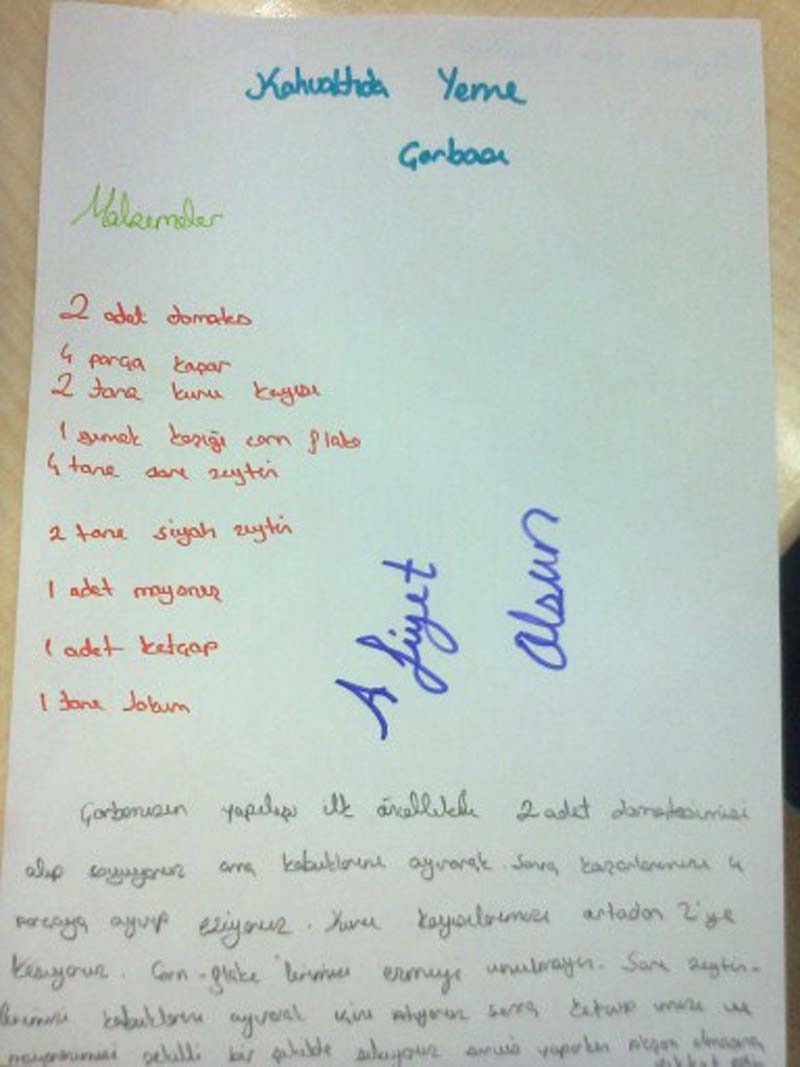 Kahvaltıda Yeme
Çorbası
Malzemeler
2 adet domates
4 parça kaşar
2 tane kuru kayısı
1 yemek kaşığı corn flake
4 tane sarı zeytin
2 tane siyah zeytin
1 adet mayonez
1 adet ketçap
1 tane lokum
Afiyet
Olsun
Çorbamızın yapılışı ilk öncelikle 2 adet domatesimizi
alıp soyuyoruz ama kabuklarını ayırarak. Sonra kaşarlarımızı 4
parçaya ayırıp eziyoruz. Kuru kayısılarımızı ortadan 2'ye
kesiyoruz. Corn-flake'lerimizi ezmeyi unutmayın. Sarı zeytin-
lerimizi kabuklarını ayırarak içini atıyoruz sonra ketçap ımızı ve
mayonezimizi şekilli bir şekilde sıkıyoruz yaparken olmasına
dikkat edin